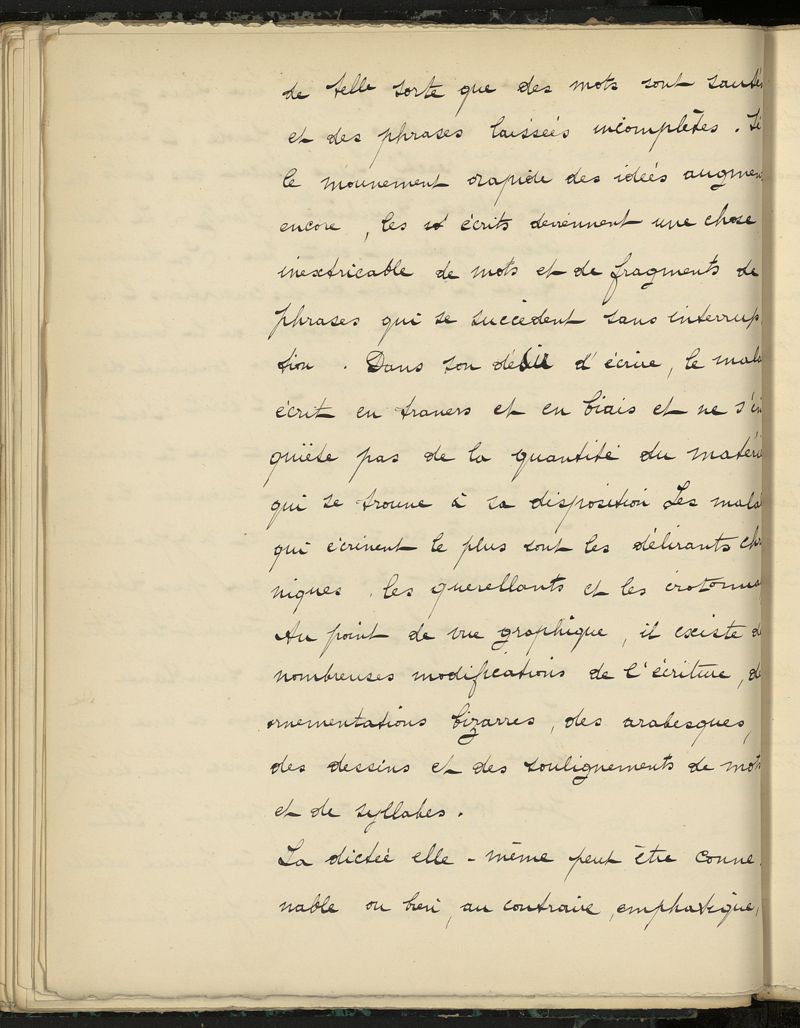 de telle sorte que des mots sont sautés
et des phrases laissées incomplètes. Si
le mouvement rapide des idées augmen
encore, les écrits deviennent une chose
inextricable de mots et de fragments de
phrases qui se succèdent sans interrup
tion. Dans son désir d'écrire, le mala
écrit en travers et en biais et ne s'in
quiète pas de la quantité du matéri
qui se trouve à sa disposition Les mala
qui écrivent le plus sont les délirants chro
niques, les querellants et les érotoma
Au point de vue graphique, il existe de
nombreuses modifications de l'écriture, d
ornementations bizarres, des arabesques,
des dessins et des soulignements de mots
et de syllabes.
La dictée elle-même peut être conve-
nable ou bien, au contraire, emphatique,